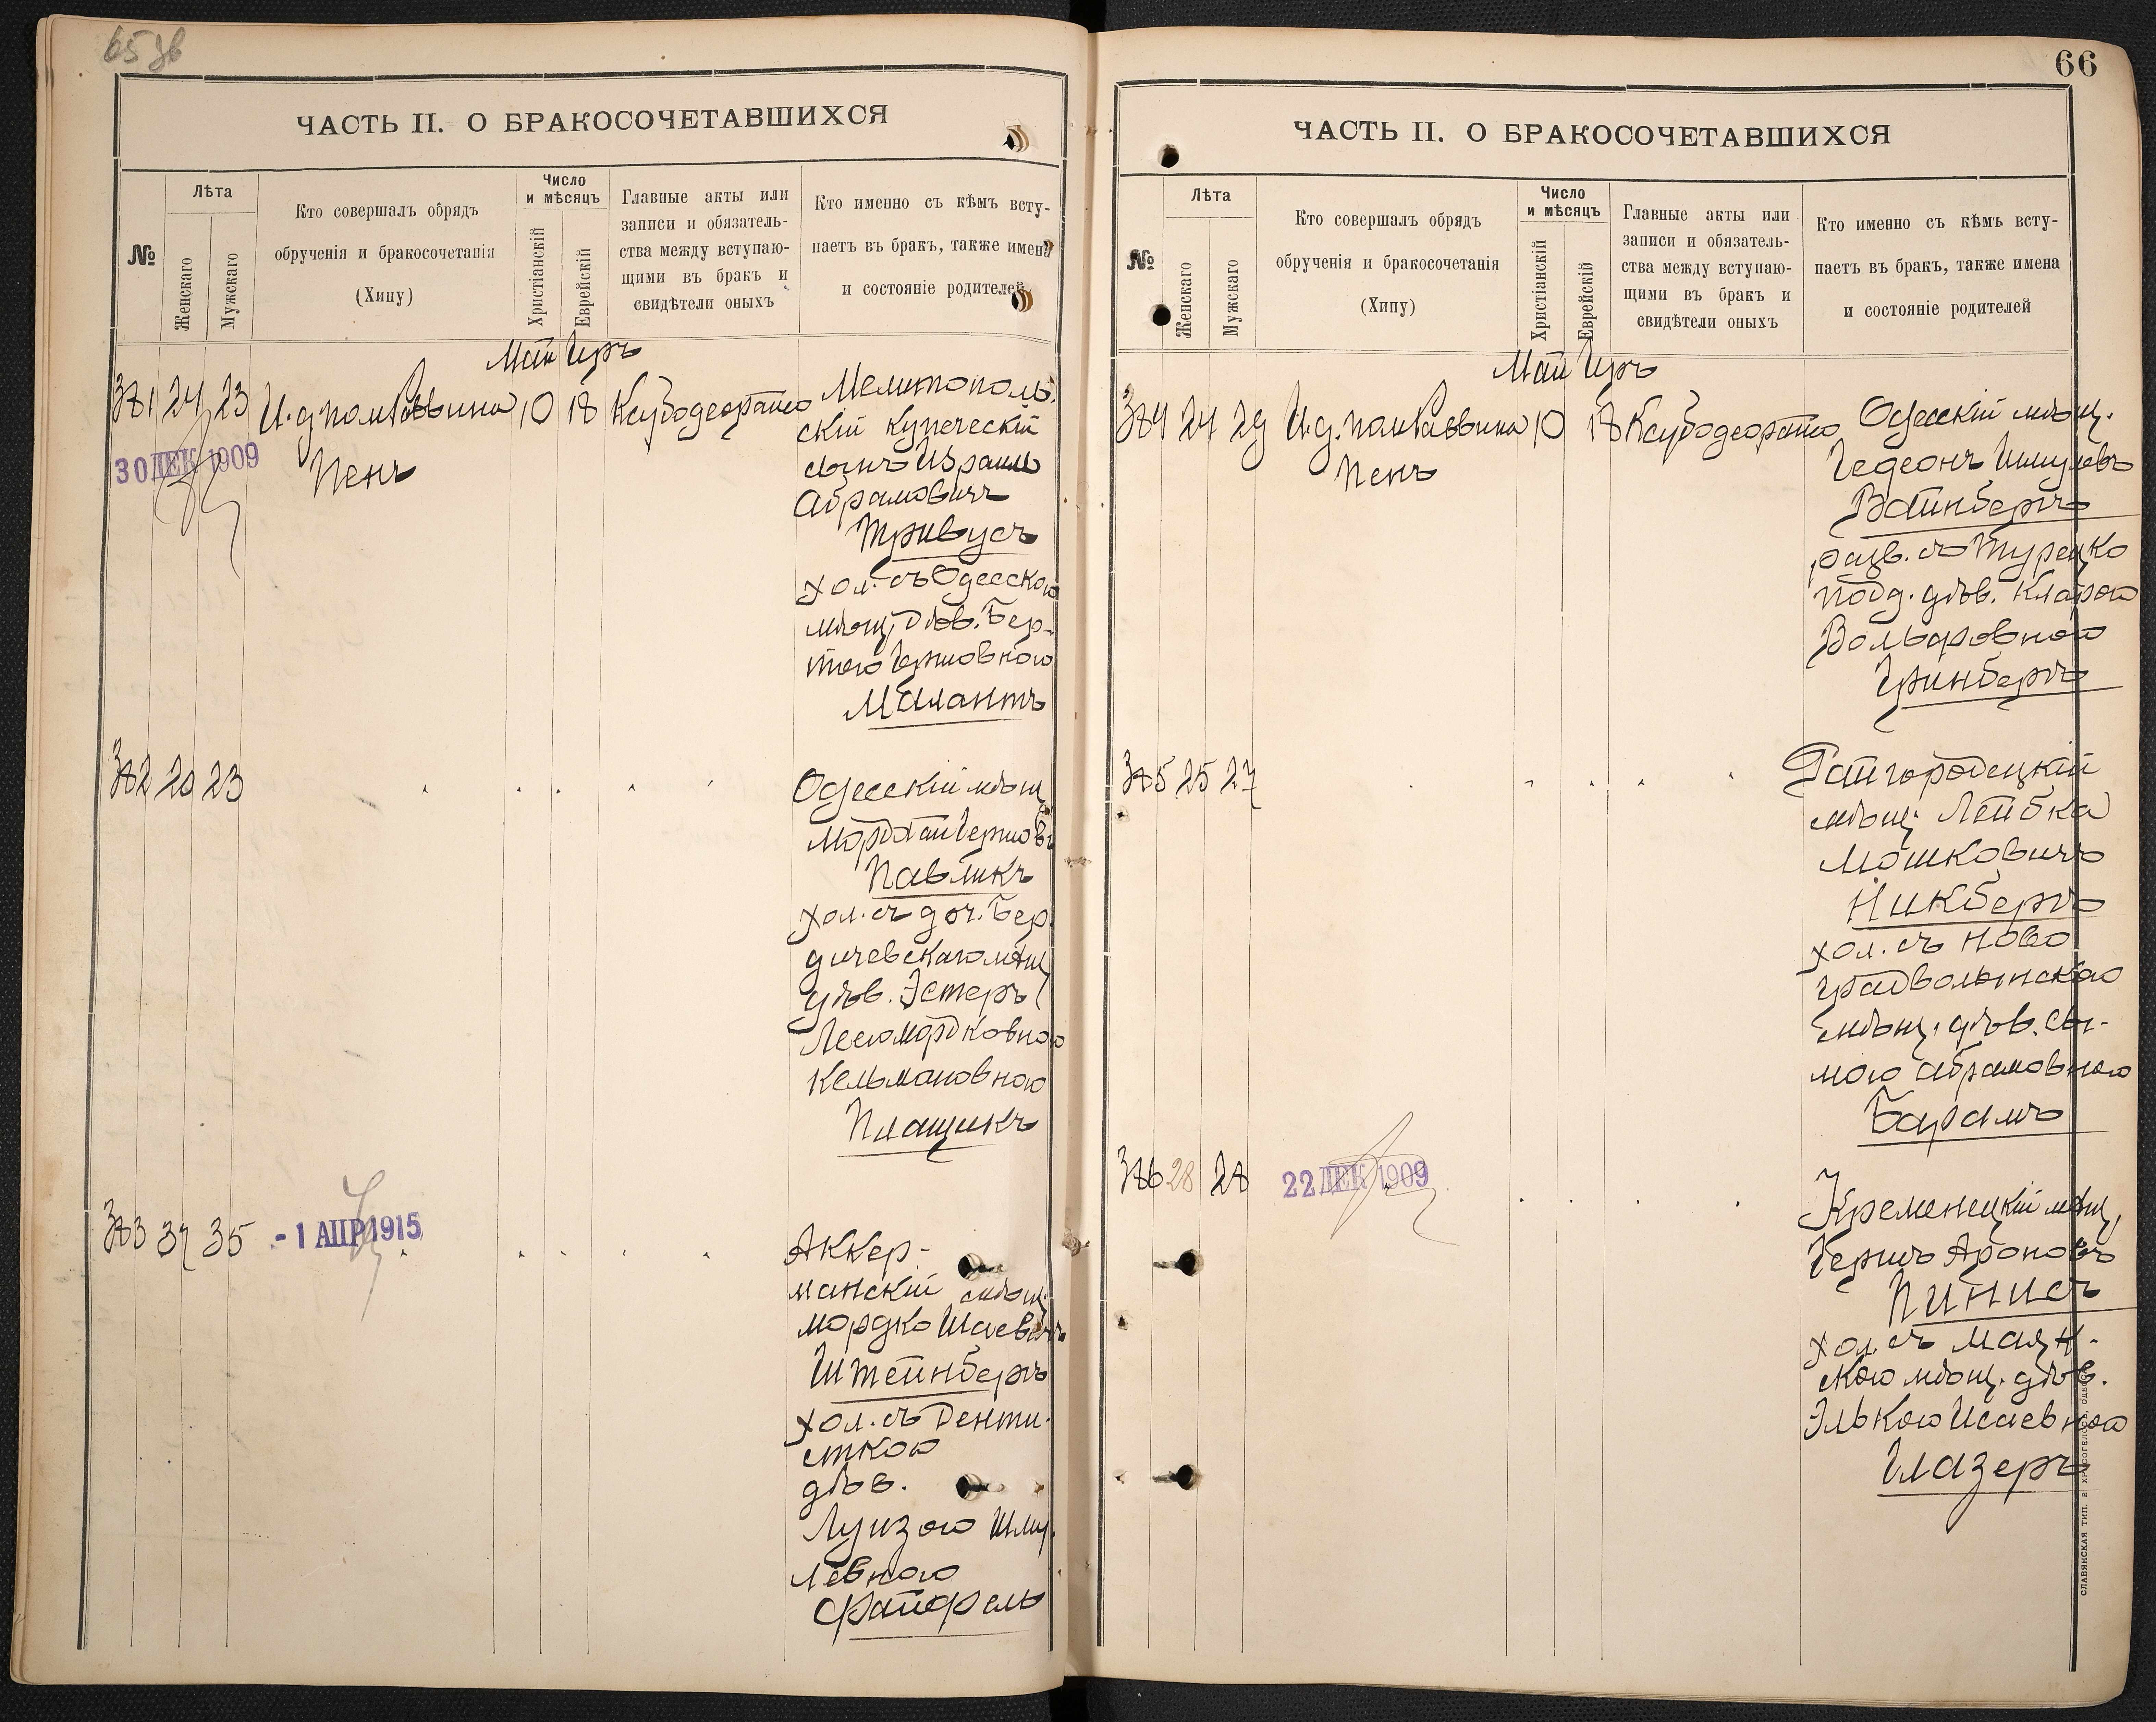 65 зв
ЧАСТЬ II. О БРАКОСОЧЕТАВШИХСЯ
№
Лѣта
Женскаго
Мужскаго
Кто совершалъ обрядъ
обрученія и бракосочетанія
(Хипу)
Число
и мѣсяцъ
Христіанскій
Еврейскій
Главные акты или
записи и обязатель-
ства между вступаю-
щими въ бракъ и
свидѣтели оныхъ
Кто именно съ кѣмъ всту-
паетъ въ бракъ, также имена
и состояніе родителей
Май Іуръ
381 24 23 И.д. пом Раввина 10 18
Пенъ
30 ДЕК 1909
Мелитополь-
скій купеческій
сынъ Израиль
Абрамовичъ
Тривусъ
хол. съ Одесскою
мѣщ. дѣв. Бер-
тою Гершовною
Малантъ
382 20 23
Одесскій мѣщ.
Мордхай Гершов.
Павликъ
хол. съ доч. Бер-
дичевскаго мѣщ
дѣв. Эстеръ
Леею Мордковною
Кельмановною
Плащикъ
383 37 35
- 1 АПР 1915
Аккер-
манскій мѣщ.
Мордко Шаевичъ
Штейнбергъ
хол. съ Денти-
сткою
дѣв.
Луизою Шму-
левною
Файфель
66
ЧАСТЬ II. О БРАКОСОЧЕТАВШИХСЯ
№
Лѣта
Женскаго
Мужскаго
Кто совершалъ обрядъ
обрученія и бракосочетанія
(Хипу)
Число
и мѣсяцъ
Христіанскій
Еврейскій
Главные акты или
записи и обязатель-
ства между вступаю-
щими въ бракъ и
свидѣтели оныхъ
Кто именно съ кѣмъ всту-
паетъ въ бракъ, также имена
и состояніе родителей
Май Іуръ
384 24 29 И.д. пом Раввина 10 18
Пенъ
Одесскій мѣщ.
Гедеонъ Шмулевъ
Вайнбергъ
разв. съ Турецко
подд. дѣв. Кларою
Вольфовною
Гринбергъ
385 25 27
Райгородецкій
мѣщ. Лейбка
Мошковичъ
Никбергъ
хол. съ Ново
градволынскою
мѣщ. дѣв. Сы-
мою Абрамовною
Барамъ
386 28 28
22 ДЕК 1909
Кременецкій мѣщ.
Гершъ Ароновъ
Пинисъ
хол. съ Маяк-
скою мѣщ. дѣв.
Элькою Исаевною
Глазеръ
СЛАВЯНСКАЯ ТИП. Е. ХРИСОГЕЛОСЪ, ОДЕССА